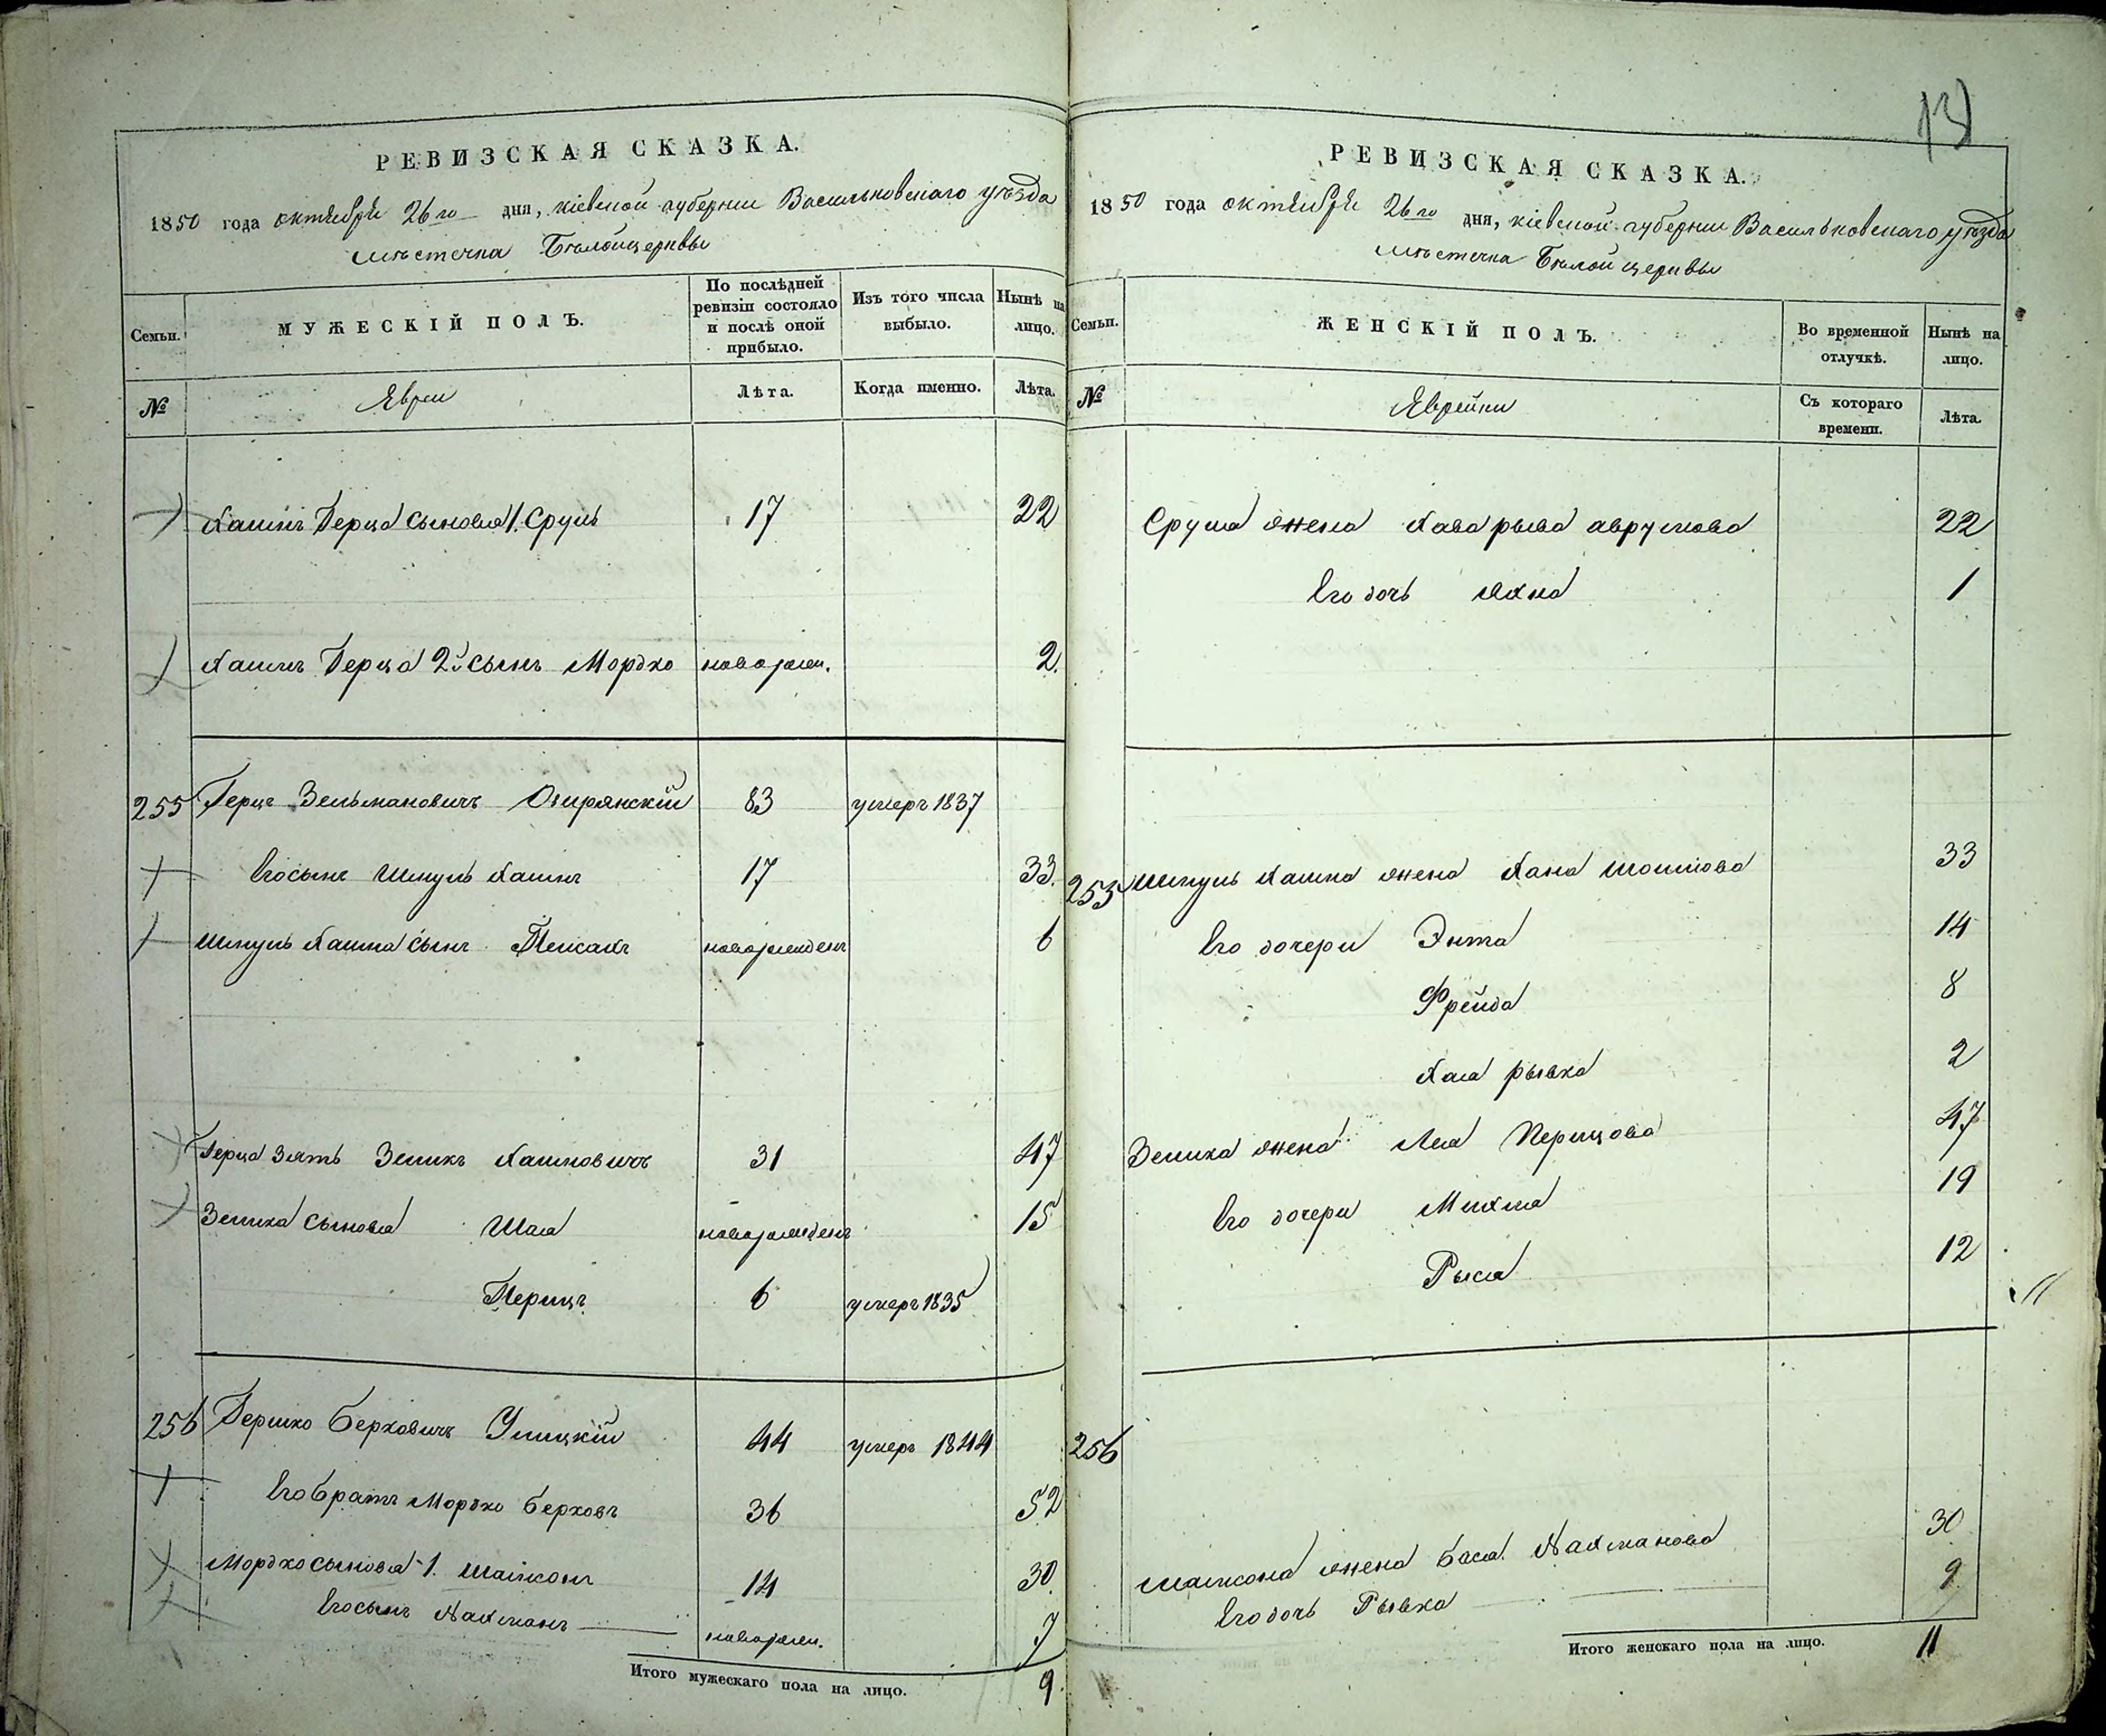 РЕВИЗСКАЯ СКАЗКА.
1850 года октября 26го дня, кіевской губерніи Васильковскаго уѣзда
мѣстечка Бѣлойцеркви
Семьи.
МУЖЕСКІЙ ПОЛЪ.
По послѣдней ревизіи состояло и послѣ оной прибыло.
Изъ того числа выбыло.
Нынѣ на лицо.
№
Евреи
Лѣта.
Когда именно.
Лѣта.
Хаимъ Герца сыновья 1. Сруль 17 22
Хаимъ Герца 2й сынъ Мордко новорожд. 2
255 Герцъ Зельмановичъ Озирянскій 83 умеръ 1837
Его сынъ Шмуль Хаимъ 17 33.
Шмуль Хаима сынъ Пейсахъ новорожденъ 6
Герца зять Зейликъ Хаимовичъ 31 47
Зейлика сыновья Шая новорожденъ 15
Перецъ 6 умеръ 1835
256 Гершко Берковичъ Улицкій 44 умеръ 1844
Его братъ Мордко Берковъ 36 52
Мордко сыновья 1. Шаймонъ 14 30
Его сынъ Нахманъ новорожд. 7
Итого мужескаго пола на лицо. 9
РЕВИЗСКАЯ СКАЗКА.
1850 года октября 26го дня, кіевской губерніи Васильковскаго уѣзда
мѣстечка Бѣлой церкви
Семьи.
ЖЕНСКІЙ ПОЛЪ.
Во временной отлучкѣ.
Нынѣ на лицо.
№
Еврейки
Съ котораго времени.
Лѣта.
Сруля жена Хава рыва аврумова 22
Его дочь Яхна 1
255 Шмуль Хаима жена Хана Шоимова 33
Его дочери Энта 14
Фрейда 8
Хая рывка 2
Зейлика жена Лея Перицова 47
Его дочери Михля 19
Рыся 12
256
Шаймона жена Бася Нахманова 30
Его дочь Рывка 9
Итого женскаго пола на лицо. 11